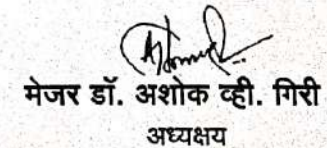 मेजर डॉ. अशोक व्ही. गिरी
अध्यक्षय